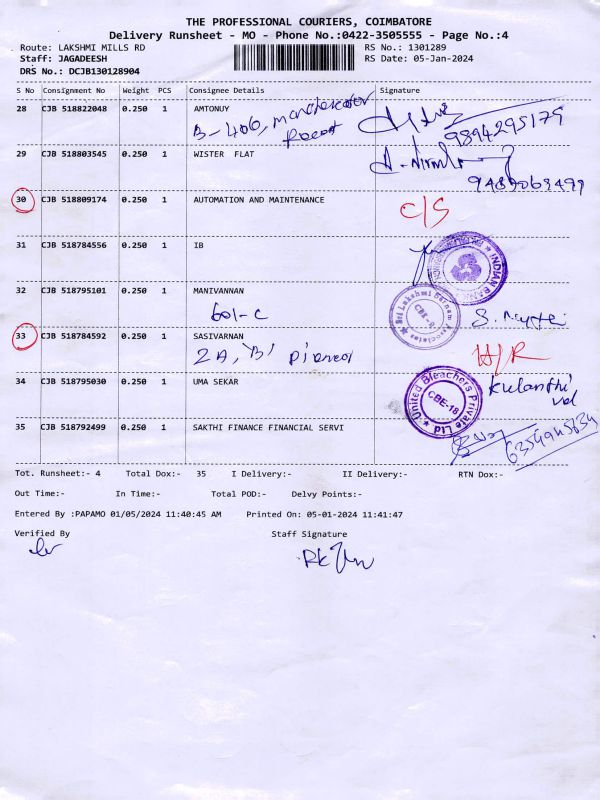 THE PROFESSIONAL COURIERS, COIMBATORE
Delivery Runsheet - MO - Phone No.:0422-3505555 - Page No.:4
Route: LAKSHMI MILLS RD RS No.: 1301289
Staff: JAGADEESH RS Date: 05-Jan-2024
DRS No.: DCJB130128904
S No Consignment No Weight PCS Consignee Details Signature
28 CJB 518822048 0.250 1 AMTONUY
B-406, manchester
9894295179
29 CJB 518803545 0.250 1 WISTER FLAT
9489069499
30 CJB 518809174 0.250 1 AUTOMATION AND MAINTENANCE
C/S
31 CJB 518784556 0.250 1 IB
INDIAN BANK
32 CJB 518795101 0.250 1 MANIVANNAN
601-C
Sri Lakshmi Associates
CBE-
33 CJB 518784592 0.250 1 SASIVARNAN
H/R
2A, 'B'
34 CJB 518795030 0.250 1 UMA SEKAR
Kulanthi
vel
United Bleachers Private Ltd
CBE-18
35 CJB 518792499 0.250 1 SAKTHI FINANCE FINANCIAL SERVI
6354945634
Tot. Runsheet:- 4 Total Dox:- 35 I Delivery:- II Delivery:- RTN Dox:-
Out Time:- In Time:- Total POD:- Delvy Points:-
Entered By :PAPAMO 01/05/2024 11:40:45 AM Printed On: 05-01-2024 11:41:47
Verified By Staff Signature